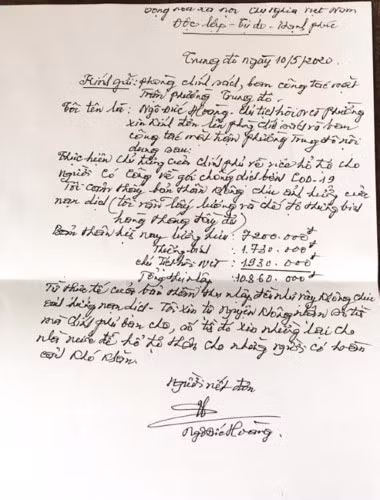 Cộng hòa xã hội chủ nghĩa Việt Nam
Độc lập - Tự do - Hạnh phúc
Trung đô ngày 10/5/2020
Kính gửi: phòng chính sách, ban công tác mặt
trận phường Trung đô.
Tôi tên là: Ngô Đức Hoàng - chi hội phường
xin kính đơn lên phòng chính sách và ban
công tác mặt trận phường Trung đô nội
dung sau:
Thực hiện chỉ của chính phủ về việc hỗ trợ cho
người có công về gói chống dịch bệnh Cov-19
Tôi cảm thấy bản thân không chịu ảnh hưởng của
nạn dịch (tôi vẫn lấy lương và chế độ thương binh
hàng tháng đầy đủ)
Bản thân hiện nay lương hưu: 7200.000đ
Thương binh: 1.730.000đ
chi hội: 1930.000đ
Tổng thu nhập: 10.860.000đ
Từ thực tế cuộc bản thân thu nhập đều như vậy không chịu
ảnh hưởng nạn dịch - Tôi xin tự nguyện không nhận số tiền
mà chính phủ ban cho, số tiền đó xin nhường lại cho
nhà nước để hỗ trợ thêm cho những người có hoàn
cảnh khó khăn.
Người viết đơn
Ngô Đức Hoàng.